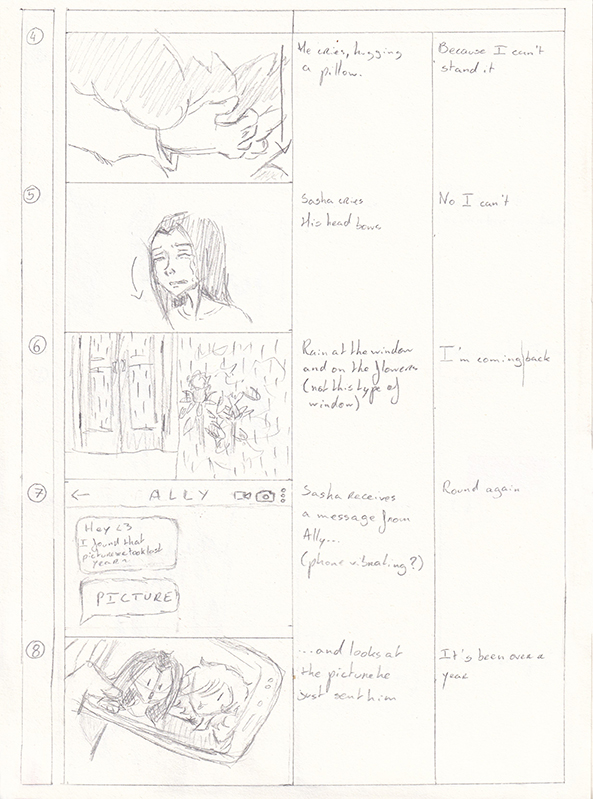 4
He cries, hugging
a pillow.
Because I can't
stand it
5
Sasha cries
His head bows
No I can't
6
Rain at the window
and on the flowers
(not this type of
window)
I'm coming back
7
← ALLY
Hey <3
I found that
picture we took last
year~
PICTURE
Sasha receives
a message from
Ally...
(phone vibrating?)
Round again
8
...and looks at
the picture he
just sent him
It's been over a
year